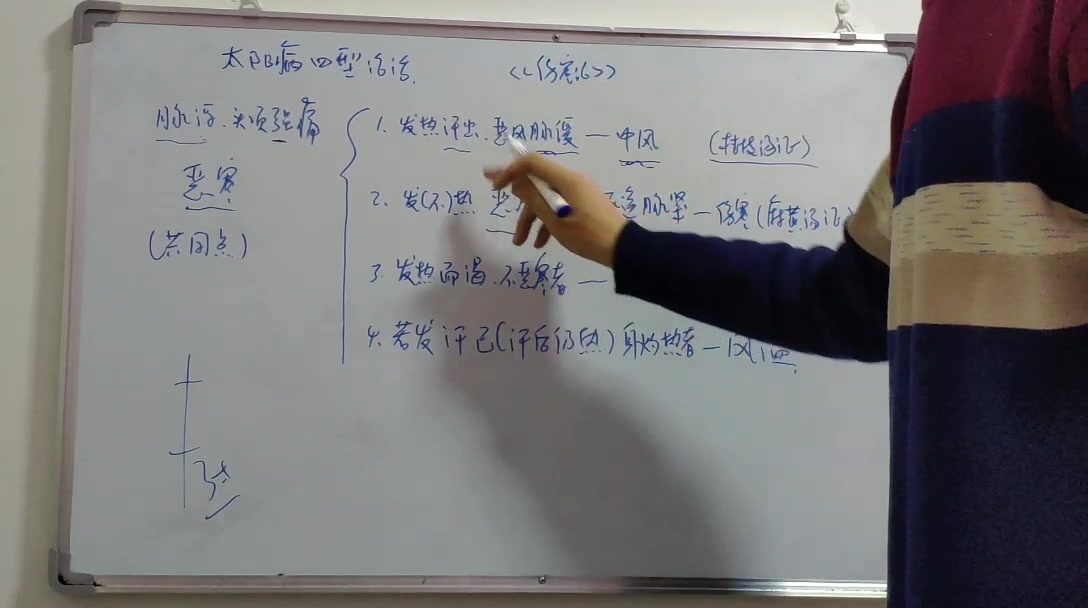 太阳病四型论治. 《伤寒论》
脉浮.头项强痛
恶寒
(共同点)
1. 发热汗出.恶风脉缓—中风 (桂枝汤证)
2. 发(不)热 恶 逆脉紧—伤寒(麻黄汤证)
3. 发热而渴.不恶寒者—
4. 若发汗已(汗后仍热)身灼热者—风温.